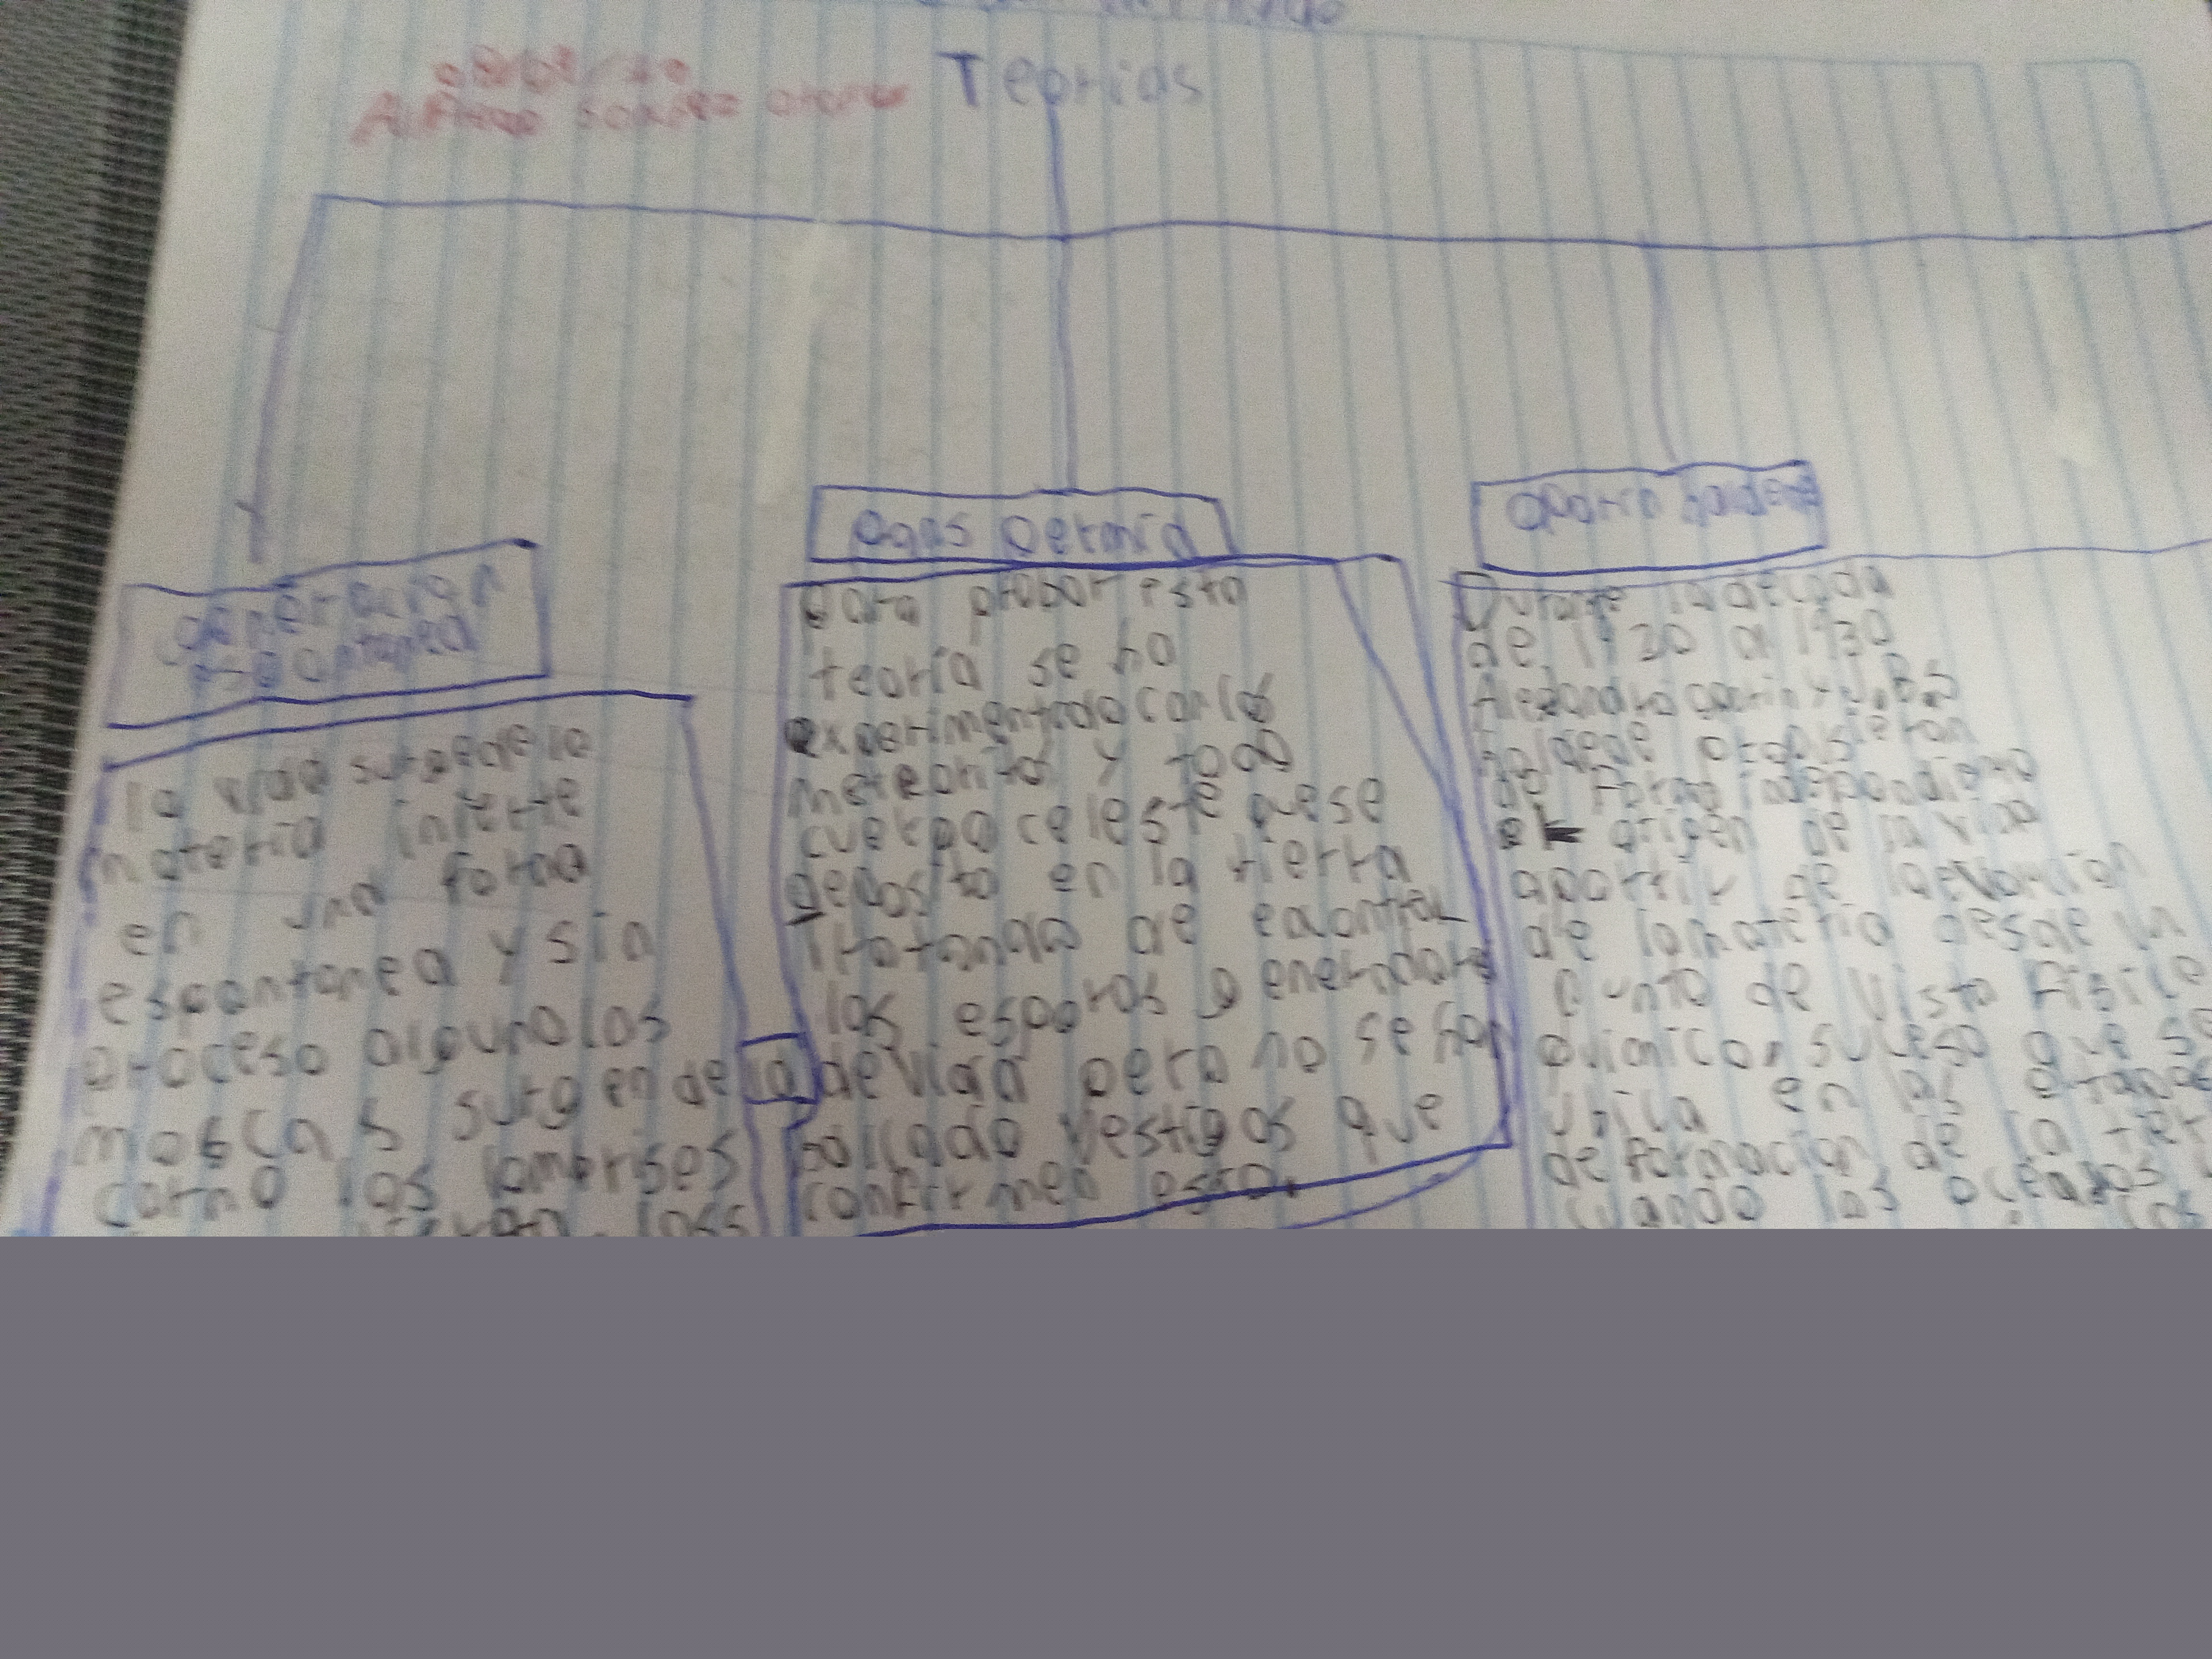 Teorias
generacion
espontanea
la vida surge de la
materia inerte
en una forma
espontanea y sin
proceso alguno los
moscas surgen de la
carno las lombrises
pans permia
para probar esta
teoria se ha
experimentado con los
meteoritos y todo
cuerpo celeste que se
deposito en la tierra
tratando de encontrar
los esporos generadores
de vida pero no se han
vestigos que
confirmen esto.
oparin haldene
Durante la decada
de 1920 a 1930
Alejandro oparin y J.B.S
haldene propusieron
de forma
el origen de la vida
apartir de la evolucion
de la materia desde un
punto de visto fisico
quimico, suceso que se
ubica en las etapas
de formacion de la tier
cuando los oceanos